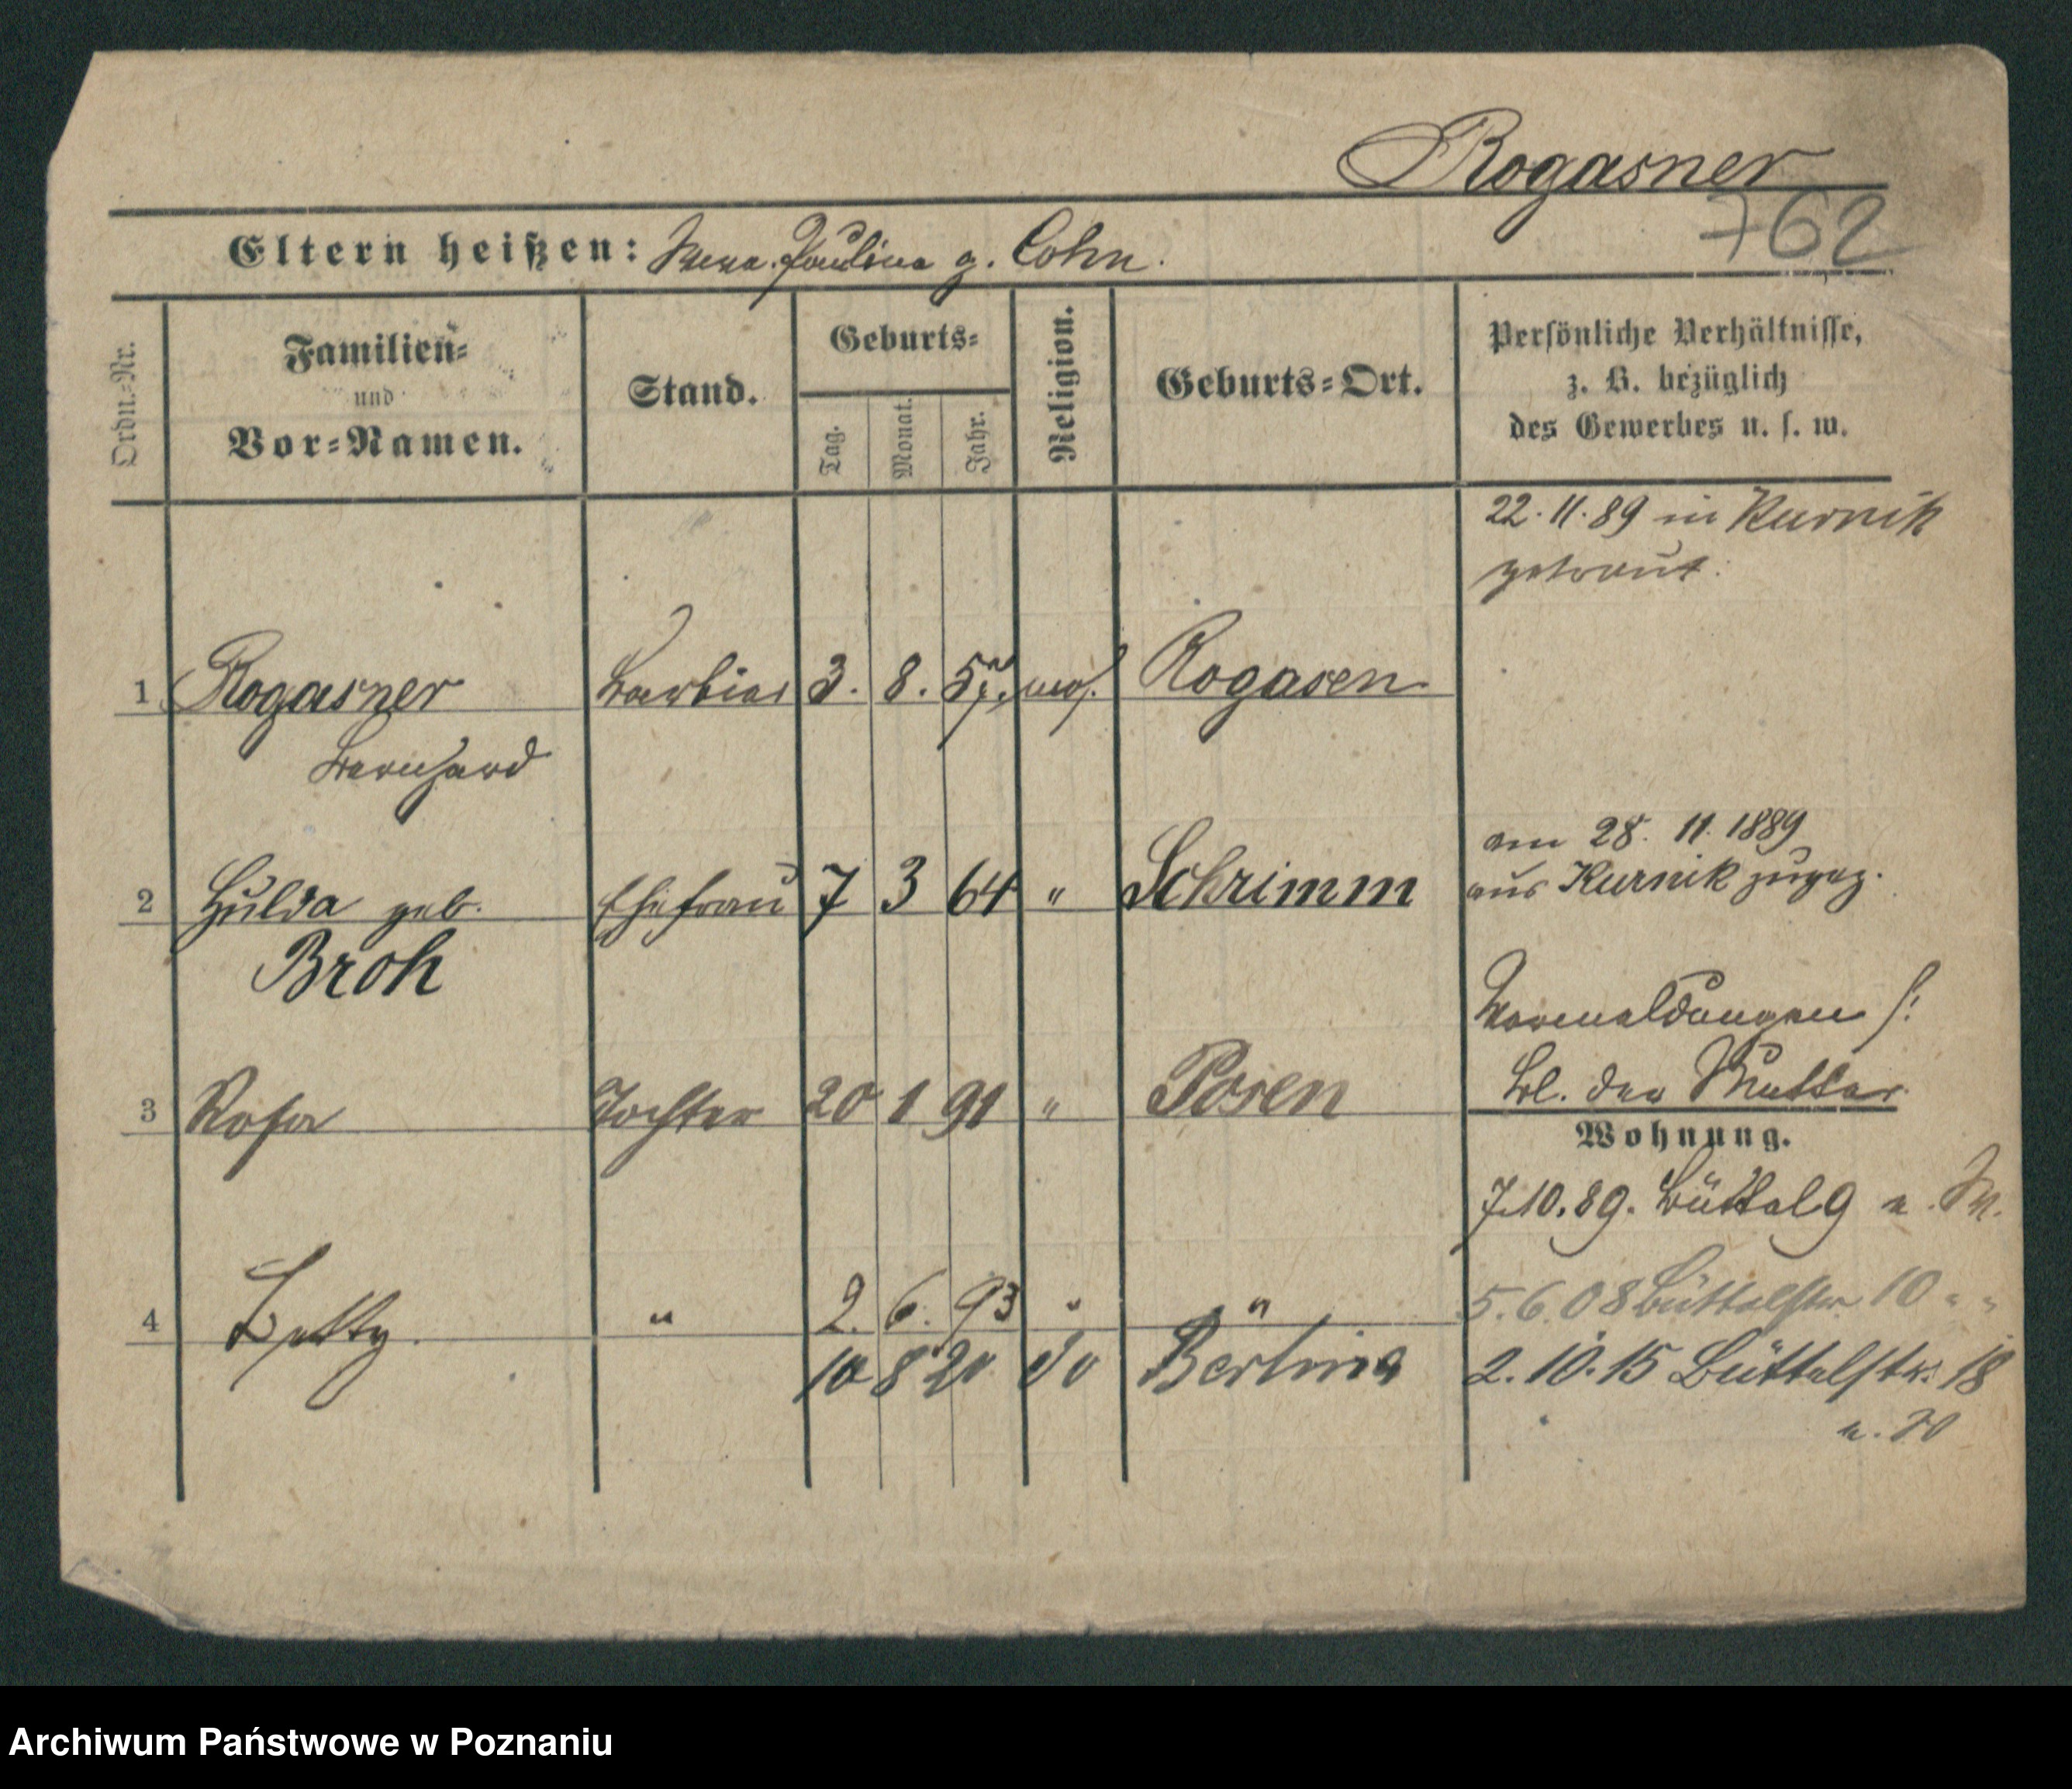 Rogasner
762
Eltern heißen: Paulina g. Cohn.
Ordn.-Nr.
Familien-
und
Vor-Namen.
Stand.
Geburts-
Tag.
Monat.
Jahr.
Religion.
Geburts-Ort.
Persönliche Verhältnisse,
z. B. bezüglich
des Gewerbes u. s. w.
22.11.89 in Kurnik
getraut.
1 Rogasner Barbier 3. 8. mos. Rogasen
Bernhard
am 28. 11. 1889
2 Hulda geb. Ehefrau 7 3 64 " Schrimm aus Kurnik zugez.
Broh
Vormeldungen s:
Bl. der Mutter
3 Rosa Tochter 20 1 91 " Posen
Wohnung.
7.10.89. Büttel 9 n. M.
4 Betty. " 2. 6. 93 " "
5.6.08 Büttelstr 10 " "
10 8 20 Berlin
2.10.15 Büttelstr. 18